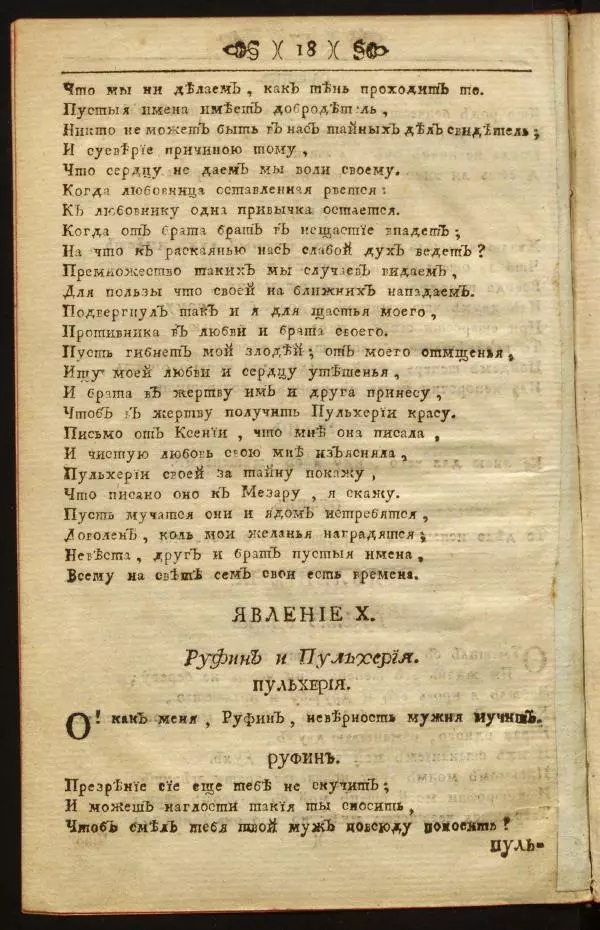 )( 18 )(
Что мы ни дѣлаемЪ, какЪ тѣнь проходитЪ то.
Пустыя имена имѣетЪ добродѣтель,
Никто не можетЪ быть вЪ насЪ тайныхЪ дѣлЪ свидѣтель;
И суевѣрїе причиною тому,
Что сердцу не даемЪ мы воли своему.
Когда любовница оставленная рвется:
КЪ любовнику одна привычка остается.
Когда отЪ брата братЪ вЪ нещастїе впадетЪ;
На что кЪ раскаянью насЪ слабой духЪ ведетЪ?
Премножество такихЪ мы случаевЪ видаемЪ,
Для пользы что своей на ближнихЪ нападаемЪ.
ПодвергнулЪ такЪ и я для щастья моего,
Противника вЪ любви и брата своего.
Пусть гибнетЪ мой злодѣй; отЪ моего отмщенья,
Ищу моей любви и сердцу утѣшенья,
И брата вЪ жертву имЪ и друга принесу,
ЧтобЪ вЪ жертву получить Пульхерїи красу.
Письмо отЪ Ксенїи, что мнѣ она писала,
И чистую любовь свою мнѣ изЪясняла,
Пульхерїи своей за тайну покажу,
Что писано оно кЪ Мезару, я скажу.
Пусть мучатся они и ядомЪ истребятся,
ДоволенЪ, коль мои желанья наградятся;
Невѣста, другЪ и братЪ пустыя имена,
Всему на свѣтѣ семЪ свои есть времена.
ЯВЛЕНІЕ X.
РуфинЪ и Пульхерїя.
ПУЛЬХЕРІЯ.
О! какЪ меня, РуфинЪ, невѣрность мужня мучитЪ.
РУФИНЪ.
Презрѣнїе сїе еще тебѣ не скучитЪ;
И можешь наглости такїя ты сносить,
ЧтобЪ смѣлЪ тебя твой мужЪ повсюду поносить?
ПУЛЬ-